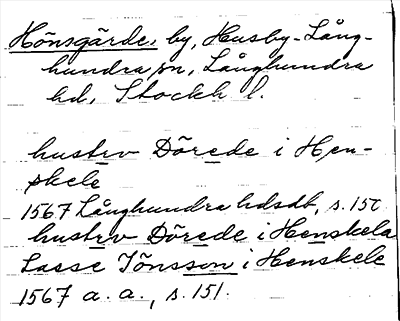 Hönsgärde, by, Husby-Lång-
hundra sn, Långhundra
hd, Stockh l.
hustrv Dörede i Hen-
skele
1567 Långhundra hdsdb, s. 150
hustrv Dörede i Henskela
Lasse Jönsson i Henskele
1567 a. a., s. 151.